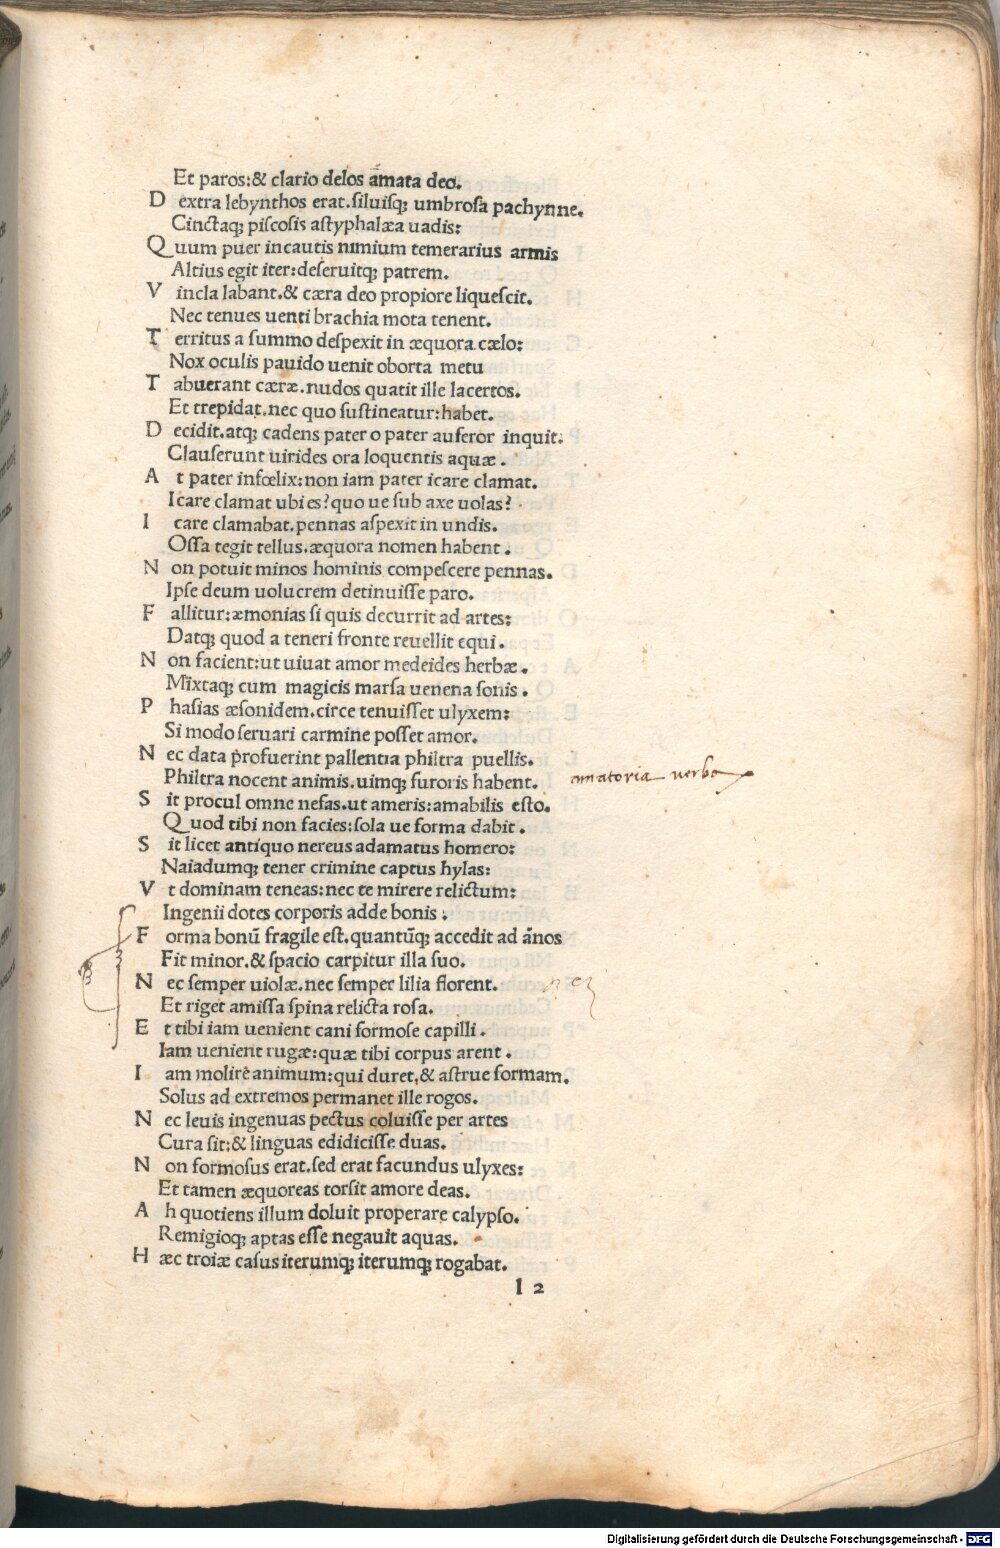 Et paros:& clario delos amata deo.
D extra lebynthos erat.siluisq; umbrosa pachynne.
Cinctaq; piscosis astyphalæa uadis:
Q uum puer incautis nimium temerarius armis
Altius egit iter:deseruitq; patrem.
V incla labant.& cæra deo propiore liquescit.
Nec tenues uenti brachia mota tenent.
T erritus a summo despexit in æquora cælo:
Nox oculis pauido uenit oborta metu
T abuerant cæræ.nudos quatit ille lacertos.
Et trepidat.nec quo sustineatur:habet.
D ecidit.atq; cadens pater o pater auferor inquit.
Clauserunt uirides ora loquentis aquæ.
A t pater infœlix:non iam pater icare clamat.
Icare clamat ubi es?quo ue sub axe uolas?
I care clamabat.pennas aspexit in undis.
Ossa tegit tellus.æquora nomen habent.
N on potuit minos hominis compescere pennas.
Ipse deum uolucrem detinuisse paro.
F allitur:æmonias si quis decurrit ad artes:
Datq; quod a teneri fronte reuellit equi.
N on facient:ut uiuat amor medeides herbæ.
Mixtaq; cum magicis marsa uenena sonis.
P hasias æsonidem.circe tenuisset ulyxem:
Si modo seruari carmine posset amor.
N ec data profuerint pallentia philtra puellis.
Philtra nocent animis.uimq; furoris habent. amatoria verba
S it procul omne nefas.ut ameris:amabilis esto.
Quod tibi non facies:sola ue forma dabit.
S it licet antiquo nereus adamatus homero:
Naiadumq; tener crimine captus hylas:
V t dominam teneas:nec te mirere relictum:
Ingenii dotes corporis adde bonis:
F orma bonū fragile est.quantūq; accedit ad ānos
Fit minor.& spacio carpitur illa suo.
N ec semper uiolæ.nec semper lilia florent.
Et riget amissa spina relicta rosa.
E t tibi iam uenient cani formose capilli.
Iam uenient rugæ:quæ tibi corpus arent.
I am molire animum:qui duret,& astrue formam.
Solus ad extremos permanet ille rogos.
N ec leuis ingenuas pectus coluisse per artes
Cura sit:& linguas edidicisse duas.
N on formosus erat.sed erat facundus ulyxes:
Et tamen æquoreas torsit amore deas.
A h quotiens illum doluit properare calypso.
Remigioq; aptas esse negauit aquas.
H æc troiæ casus iterumq; iterumq; rogabat.
I 2
Digitalisierung gefördert durch die Deutsche Forschungsgemeinschaft - DFG